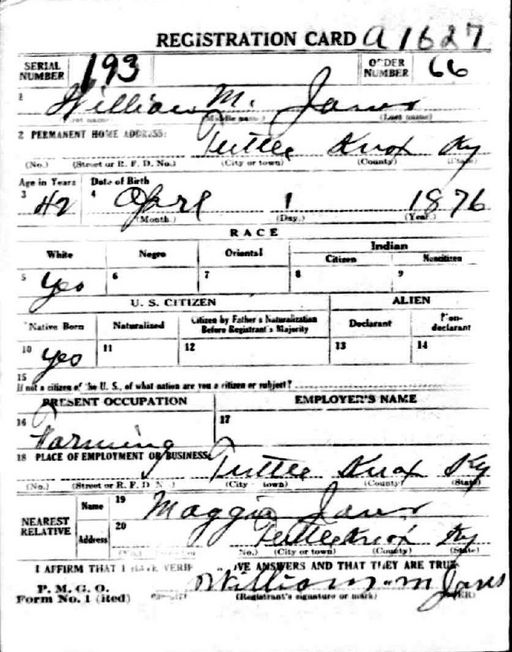 REGISTRATION CARD A 1627
SERIAL NUMBER 193 ORDER NUMBER 66
1 William M. Janes
(Middle name) (Last name)
2 PERMANENT HOME ADDRESS:
Tuttle Knox Ky
(No.) (Street or R. F. D. No.) (City or town) (County) (State)
Age in Years Date of Birth
3 42 4 Aprl 1 1876
(Month.) (Day.) (Year.)
RACE
White Negro Oriental Indian
Citizen Noncitizen
5 Yes 6 7 8 9
U. S. CITIZEN ALIEN
Native Born Naturalized Citizen by Father's Naturalization Before Registrant's Majority Declarant Non-declarant
10 Yes 11 12 13 14
15
If not a citizen of the U. S., of what nation are you a citizen or subject?
PRESENT OCCUPATION EMPLOYER'S NAME
16 Farming 17
18 PLACE OF EMPLOYMENT OR BUSINESS:
Tuttle Knox Ky
(No.) (Street or R. F. D. N .) (City town) (County) (State)
NEAREST RELATIVE Name 19 Maggie Janes
Address 20 Tuttle Knox Ky
No.) (City or town) (County) (State)
I AFFIRM THAT I HAVE VERIF VE ANSWERS AND THAT THEY ARE TRUE
P. M. G. O.
Form No. 1 (Red) William M Janes
(Registrant's signature or mark)